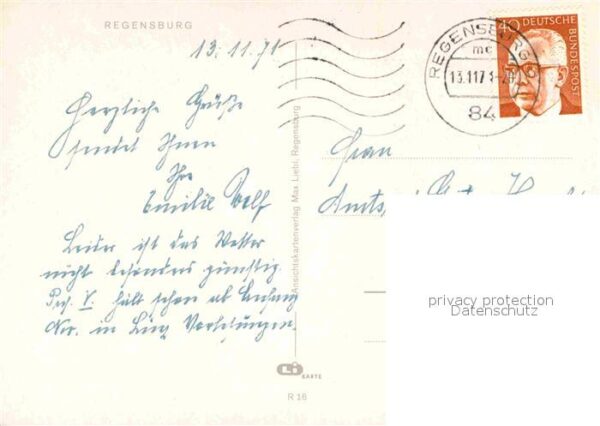 REGENSBURG
13.11.71
Herzliche Grüße
sendet Ihnen
Ihre
Emilie Wolf
Leider ist das Wetter
nicht besonders günstig.
Prof. V. hält schon ab Anfang
Nov. in Linz Vorlesungen.
Ansichtskartenverlag Max Liebl, Regensburg
Li
KARTE
R 16
REGENSBURG
mc
13.11.71
84
40 DEUTSCHE
BUNDESPOST
Frau
Amts
privacy protection
Datenschutz